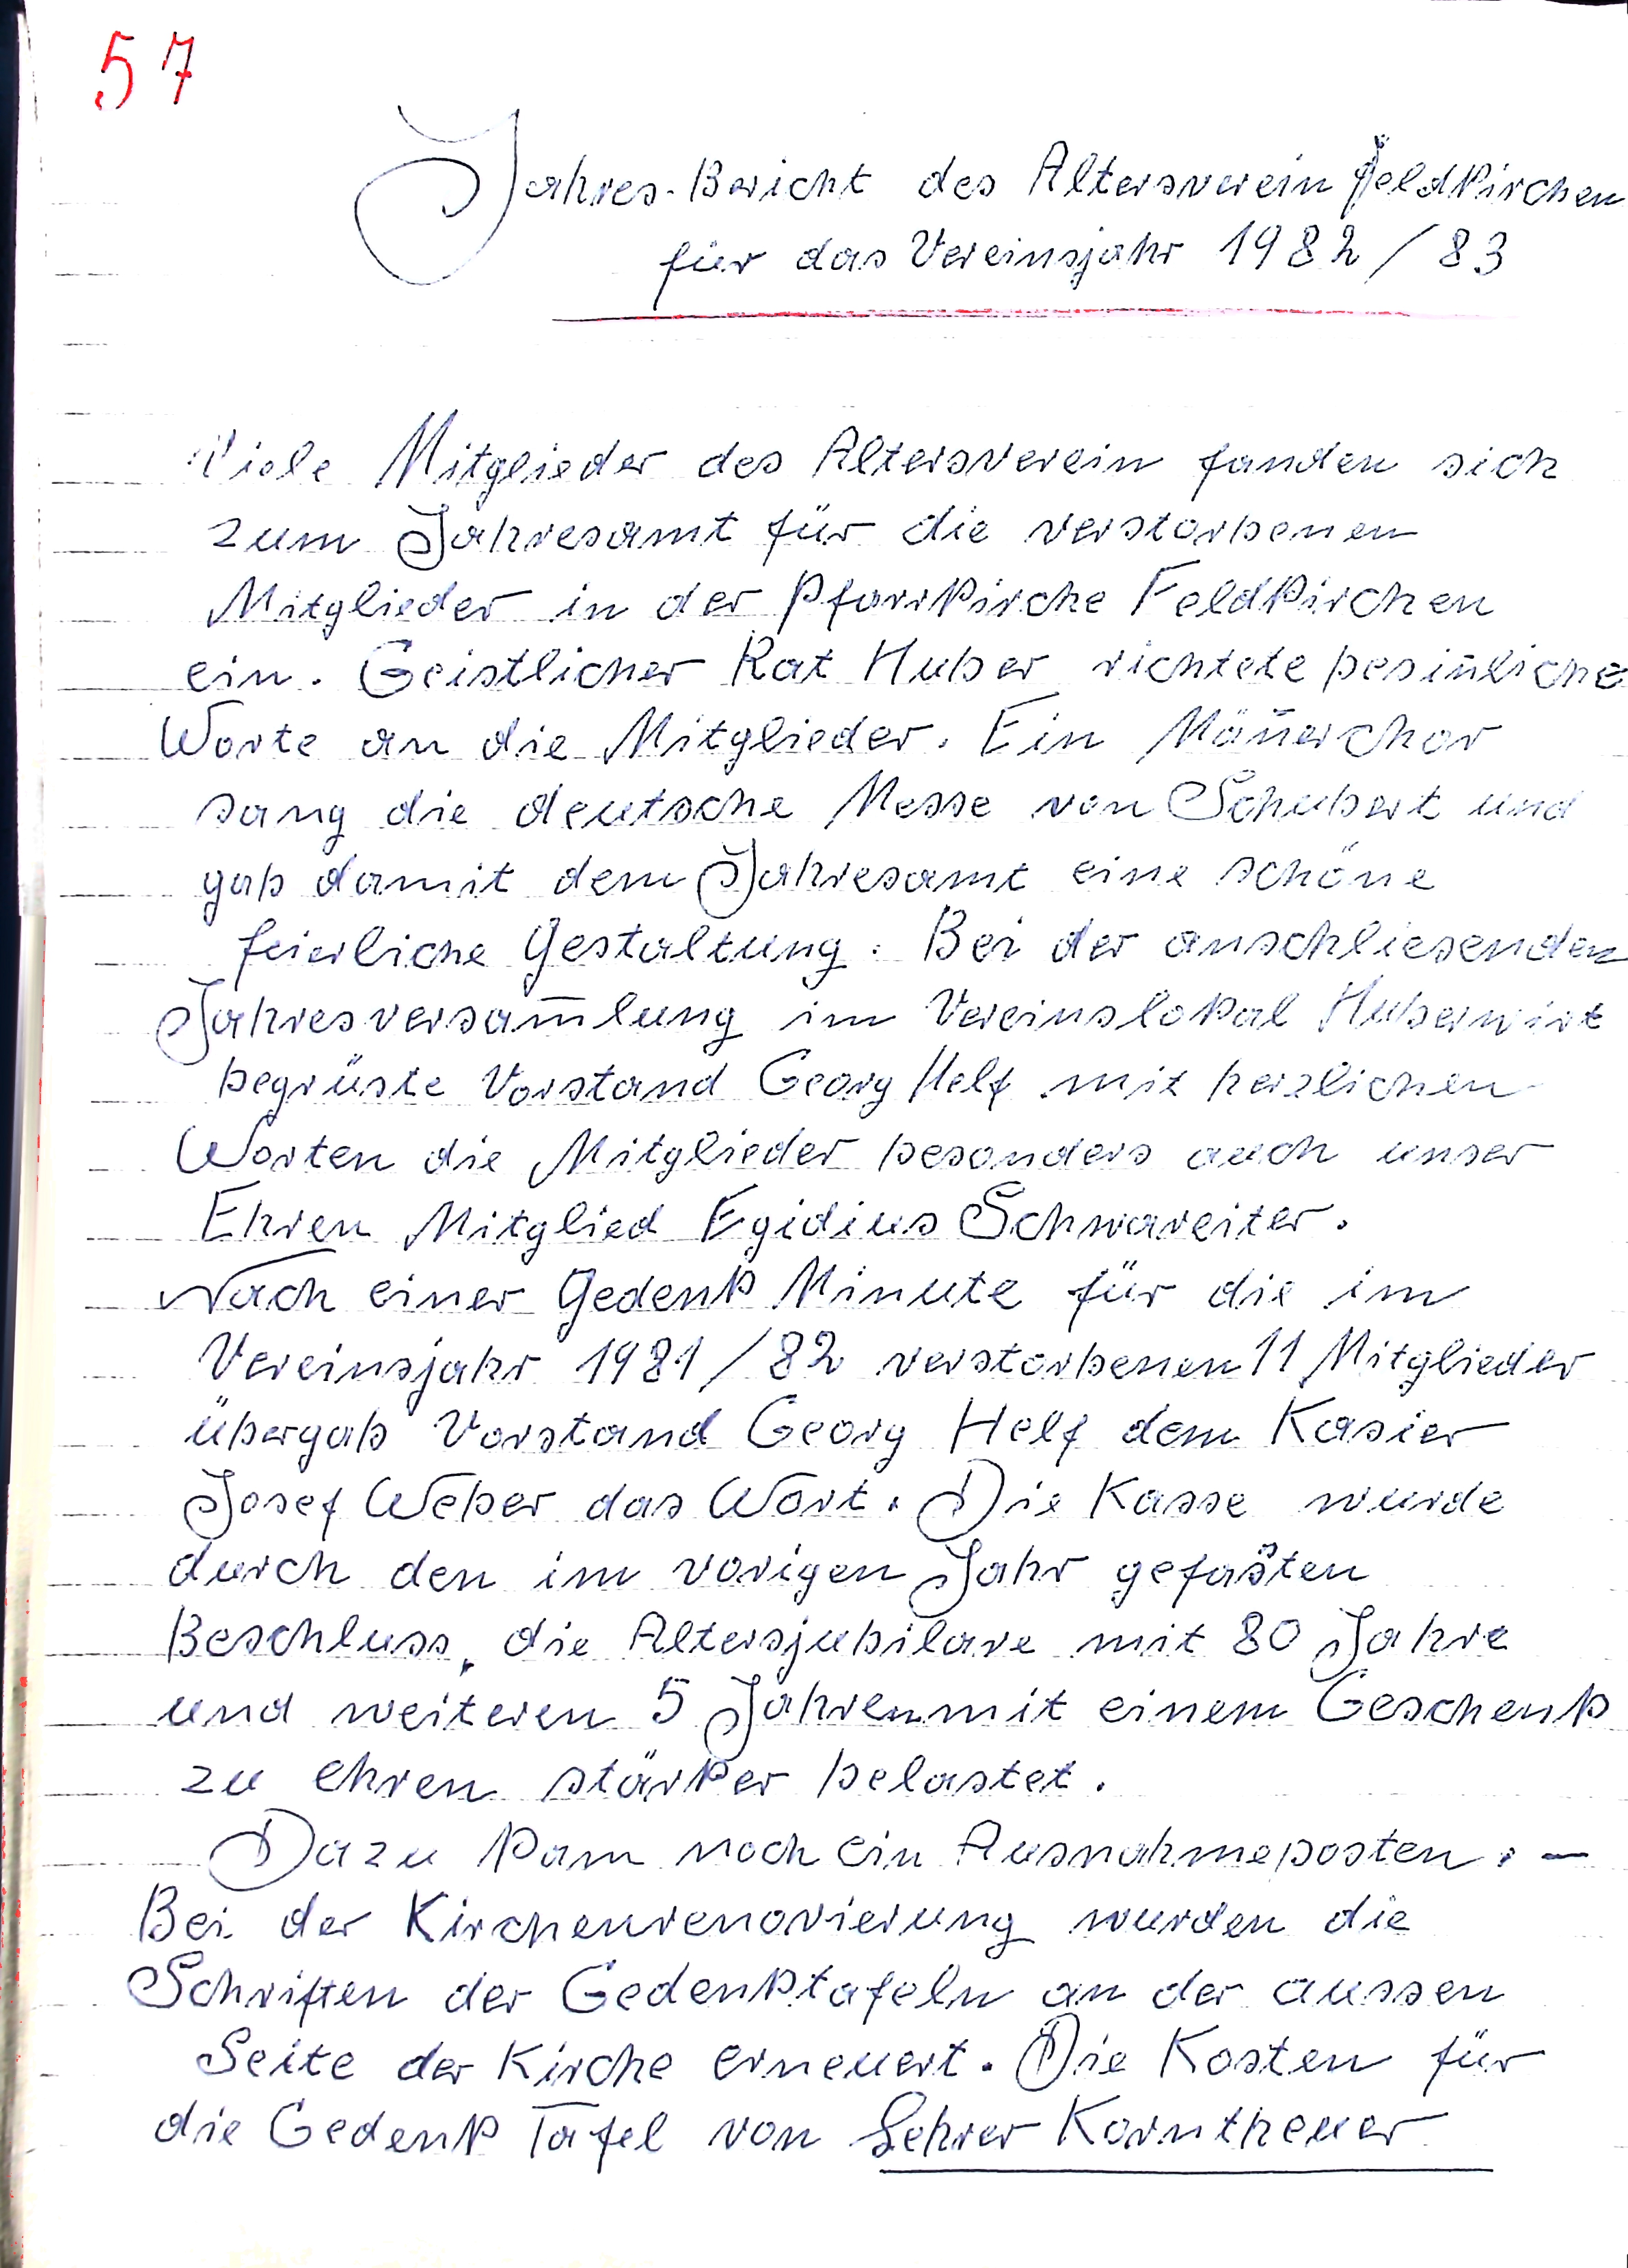 57
Jahres-Bericht des Altersverein Feldkirchen
für das Vereinsjahr 1982/83
Viele Mitglieder des Altersverein fanden sich
zum Jahresamt für die verstorbenen
Mitglieder in der Pfarrkirche Feldkirchen
ein. Geistlicher Rat Huber richtete besin̄liche
Worte an die Mitglieder. Ein Män̄erchor
sang die deutsche Messe von Schubert und
gab damit dem Jahresamt eine schöne
feierliche Gestaltung. Bei der anschliesenden
Jahresversam̄lung im Vereinslokal Huberwirt
begrüste Vorstand Georg Helf mit herzlichen
Worten die Mitglieder besonders auch unser
Ehren Mitglied Egidius Schwareiter.
Nach einer Gedenk Minute für die im
Vereinsjahr 1981/82 verstorbenen 11 Mitglieder
übergab Vorstand Georg Helf dem Kasier
Josef Weber das Wort. Die Kasse wurde
durch den im vorigen Jahr gefasten
Beschluss, die Altersjubilare mit 80 Jahre
und weiteren 5 Jahren mit einem Geschenk
zu ehren stärker belastet.
Dazu kam noch ein Ausnahmeposten. –
Bei der Kirchenrenovierung wurden die
Schriften der Gedenktafeln an der aussen
Seite der Kirche erneuert. Die Kosten für
die Gedenk Tafel von Lehrer Korntheuer